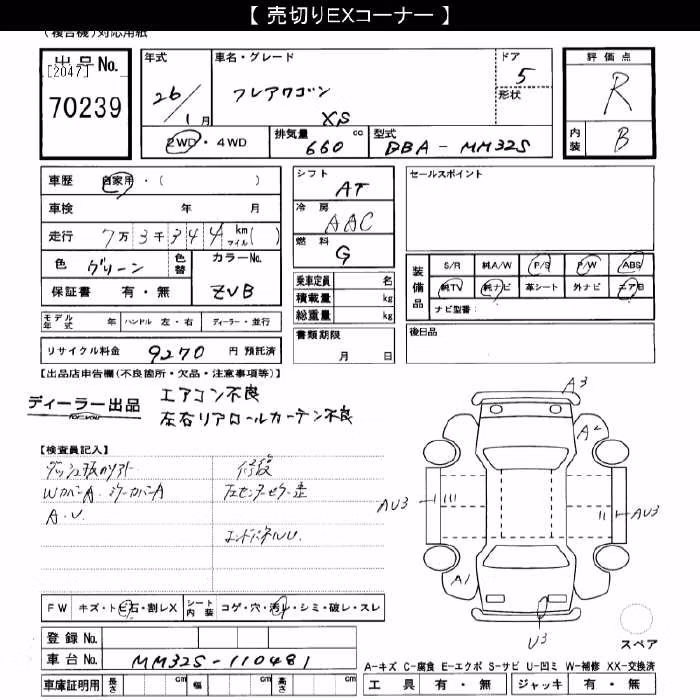 【 売切りEXコーナー 】
(複合機)対応用紙
出品No.
[2047]
70239
年式
26/1月
車名・グレード
フレアワゴン
XS
ドア
5
形状
評価点
R
内装
B
2WD・4WD
排気量
660 cc
型式
DBA - MM32S
車歴 自家用・( )
車検 年 月
走行 7万3千344 km マイル( )
色 グリーン
色替
カラーNo.
ZVB
保証書 有・無
モデル年式 年 ハンドル 左・右 ディーラー・並行
リサイクル料金 9270 円 預託済
シフト
AT
冷房
AAC
燃料
G
乗車定員 名
積載量 kg
総重量 kg
書類期限
月 日
セールスポイント
装備品
S/R 純A/W P/S P/W ABS
純TV 純ナビ 革シート 外ナビ エアB
ナビ型番:
後日品
【出品店申告欄(不良箇所・欠品・注意事項等)】
ディーラー出品
FOR YOU
エアコン不良
左右リアロールカーテン不良
【検査員記入】
A・U.
修復
FW キズ・トビ石・割レX
シート内装 コゲ・穴・汚レ・シミ・破レ・スレ
登録No.
車台No. MM32S-110481
車庫証明用 長さ cm 幅 cm 高さ cm
A3
A2
AU3
AU3
A1
U3
スペア
A-キズ C-腐食 E-エクボ S-サビ U-凹ミ W-補修 XX-交換済
工具 有・無 ジャッキ 有・無